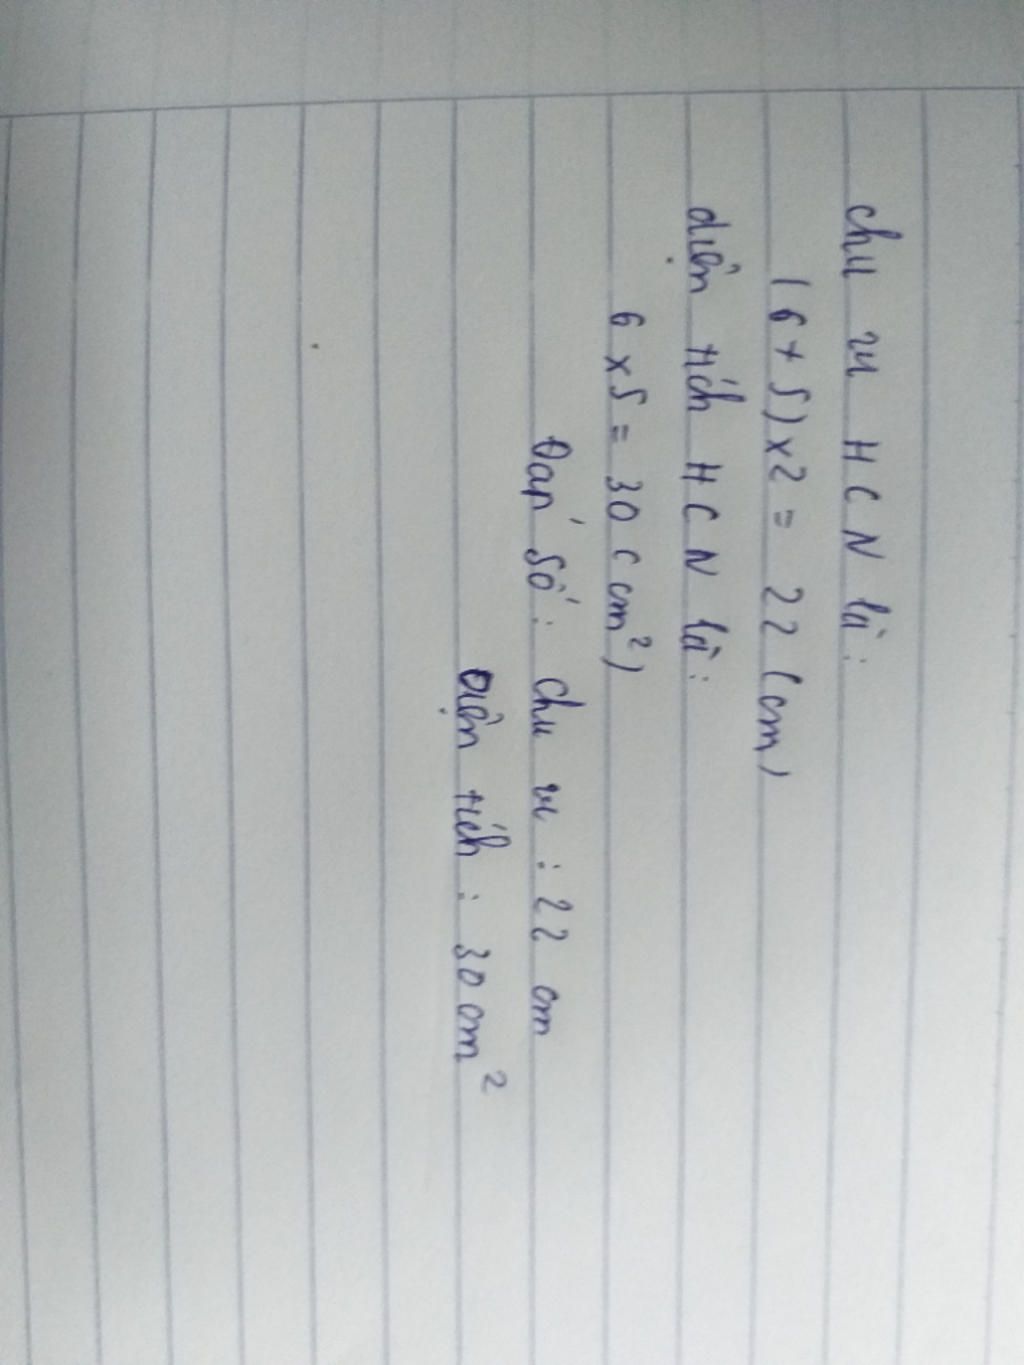 chu vi HCN là:
(6+5)x2 = 22 (cm)
diện tích HCN là:
6 x 5 = 30 ( cm²)
Đáp số: chu vi : 22 cm
Diện tích : 30 cm²